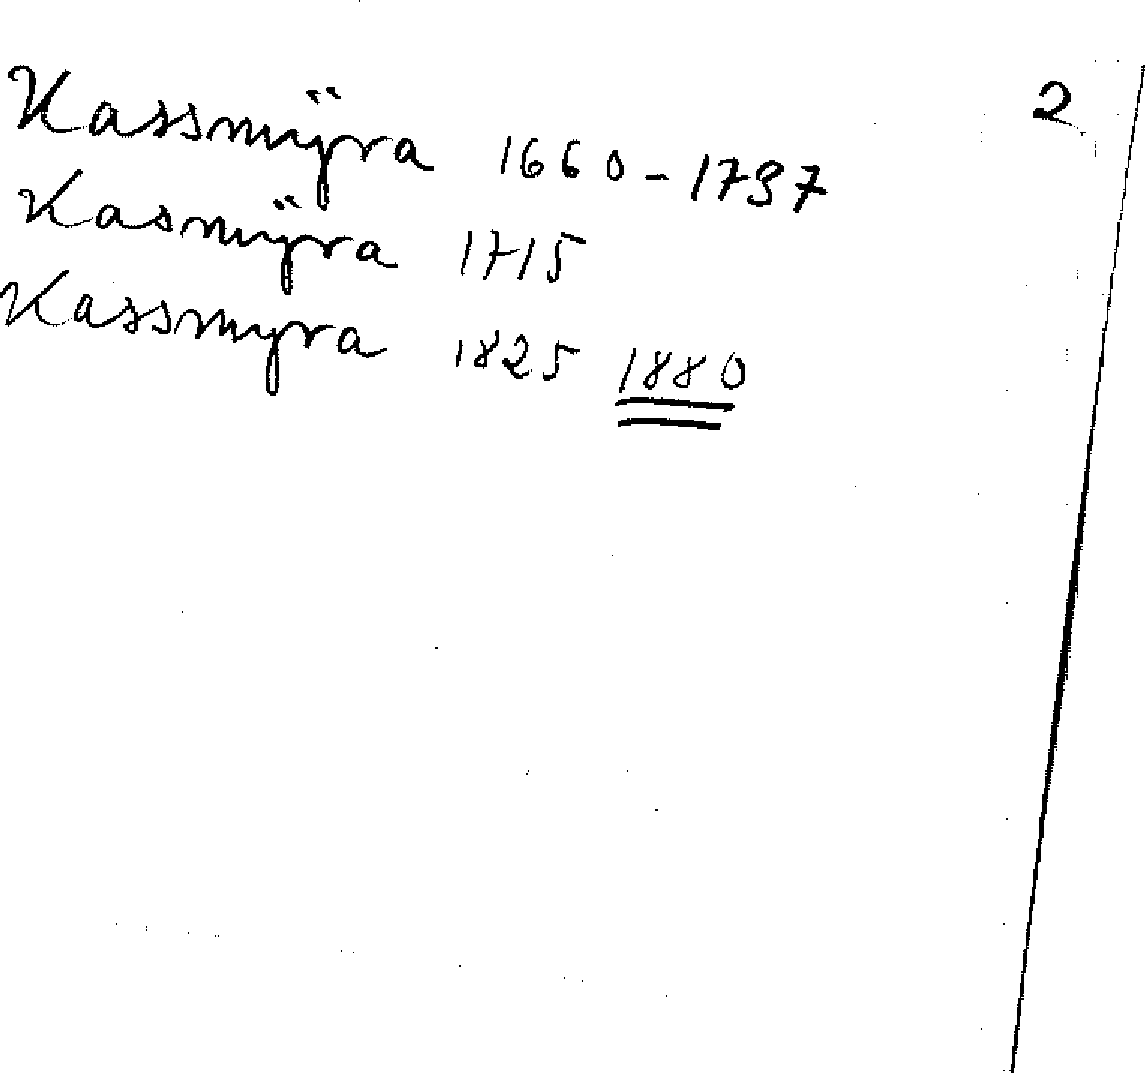 2
Kassmÿra 1660-1737
Kasmÿra 1715
Kassmyra 1825 1880